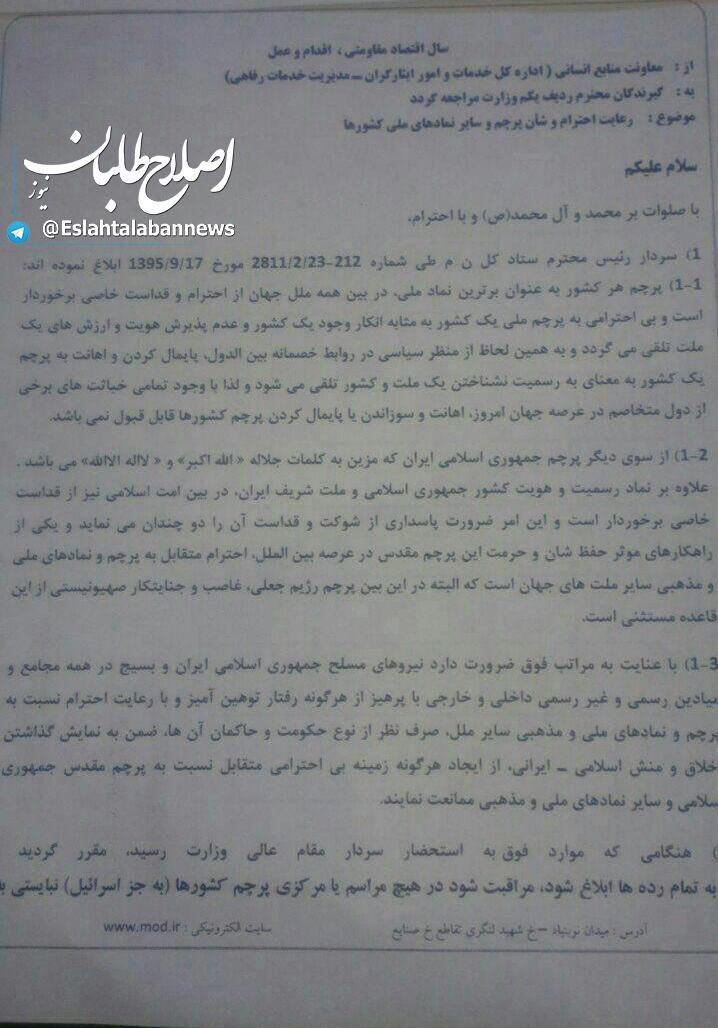 اصلاح طلبان
نیوز
@Eslahtalabannews
سال اقتصاد مقاومتی ، اقدام و عمل
از : معاونت منابع انسانی ( اداره کل خدمات و امور ایثارگران ــ مدیریت خدمات رفاهی)
به : گیرندگان محترم ردیف یکم وزارت مراجعه گردد
موضوع : رعایت احترام و شأن پرچم و سایر نمادهای ملی کشورها
سلام علیکم
با صلوات بر محمد و آل محمد(ص) و با احترام،
1) سردار رئیس محترم ستاد کل ن م طی شماره 212-2811/2/23 مورخ 1395/9/17 ابلاغ نموده اند:
1-1) پرچم هر کشور به عنوان برترین نماد ملی، در بین همه ملل جهان از احترام و قداست خاصی برخوردار
است و بی احترامی به پرچم ملی یک کشور به مثابه انکار وجود یک کشور و عدم پذیرش هویت و ارزش های یک
ملت تلقی می گردد و به همین لحاظ از منظر سیاسی در روابط خصمانه بین الدول، پایمال کردن و اهانت به پرچم
یک کشور به معنای به رسمیت نشناختن یک ملت و کشور تلقی می شود و لذا با وجود تمامی خباثت های برخی
از دول متخاصم در عرصه جهان امروز، اهانت و سوزاندن یا پایمال کردن پرچم کشورها قابل قبول نمی باشد.
1-2) از سوی دیگر پرچم جمهوری اسلامی ایران که مزین به کلمات جلاله « الله اکبر» و « لااله الاالله» می باشد .
علاوه بر نماد رسمیت و هویت کشور جمهوری اسلامی و ملت شریف ایران، در بین امت اسلامی نیز از قداست
خاصی برخوردار است و این امر ضرورت پاسداری از شوکت و قداست آن را دو چندان می نماید و یکی از
راهکارهای موثر حفظ شان و حرمت این پرچم مقدس در عرصه بین الملل، احترام متقابل به پرچم و نمادهای ملی
و مذهبی سایر ملت های جهان است که البته در این بین پرچم رژیم جعلی، غاصب و جنایتکار صهیونیستی از این
قاعده مستثنی است.
1-3) با عنایت به مراتب فوق ضرورت دارد نیروهای مسلح جمهوری اسلامی ایران و بسیج در همه مجامع و
میادین رسمی و غیر رسمی داخلی و خارجی با پرهیز از هرگونه رفتار توهین آمیز و با رعایت احترام نسبت به
پرچم و نمادهای ملی و مذهبی سایر ملل، صرف نظر از نوع حکومت و حاکمان آن ها، ضمن به نمایش گذاشتن
خلاق و منش اسلامی ــ ایرانی، از ایجاد هرگونه زمینه بی احترامی متقابل نسبت به پرچم مقدس جمهوری
سلامی و سایر نمادهای ملی و مذهبی ممانعت نمایند.
) هنگامی که موارد فوق به استحضار سردار مقام عالی وزارت رسید، مقرر گردید
به تمام رده ها ابلاغ شود، مراقبت شود در هیچ مراسم یا مرکزی پرچم کشورها (به جز اسرائیل) نبایستی
آدرس : میدان نوبنیاد –خ شهید لنگری تقاطع خ صنایع
سایت الکترونیکی : www.mod.ir